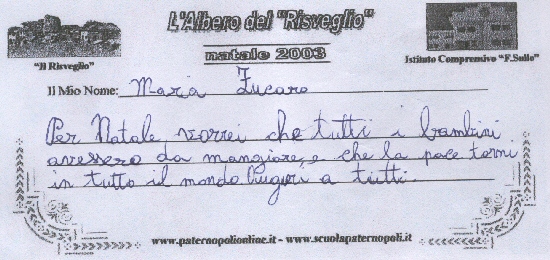 L'Albero del "Risveglio"
natale 2003
"Il Risveglio"
Istituto Comprensivo "F.Sullo"
Il Mio Nome: Maria Zucaro
Per Natale vorrei che tutti i bambini
avessero da mangiare, e che la pace torni
in tutto il mondo Auguri a tutti.
www.paternopolionline.it - www.scuolapaternopoli.it